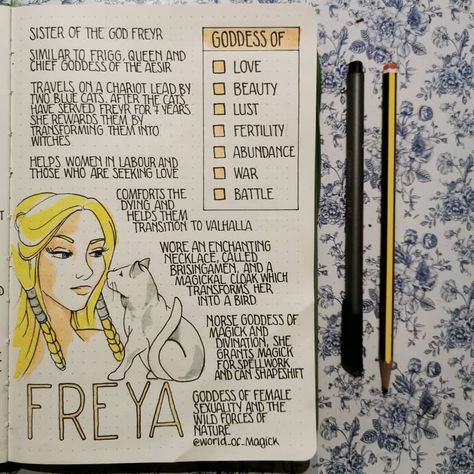 SISTER OF THE GOD FREYR
SIMILAR TO FRIGG, QUEEN AND
CHIEF GODDESS OF THE AESIR
TRAVELS ON A CHARIOT LEAD BY
TWO BLUE CATS. AFTER THE CATS
HAVE SERVED FREYR FOR 7 YEARS
SHE REWARDS THEM BY
TRANSFORMING THEM INTO
WITCHES
HELPS WOMEN IN LABOUR AND
THOSE WHO ARE SEEKING LOVE
COMFORTS THE
DYING AND
HELPS THEM
TRANSITION TO VALHALLA
WORE AN ENCHANTING
NECKLACE, CALLED
BRISINGAMEN, AND A
MAGICKAL CLOAK WHICH
TRANSFORMS HER
INTO A BIRD
NORSE GODDESS OF
MAGICK AND
DIVINATION, SHE
GRANTS MAGICK
FOR SPELLWORK
AND CAN SHAPESHIFT
GODDESS OF FEMALE
SEXUALITY AND THE
WILD FORCES OF
NATURE
@WORLD_OF_MAGICK
FREYA
GODDESS OF
LOVE
BEAUTY
LUST
FERTILITY
ABUNDANCE
WAR
BATTLE